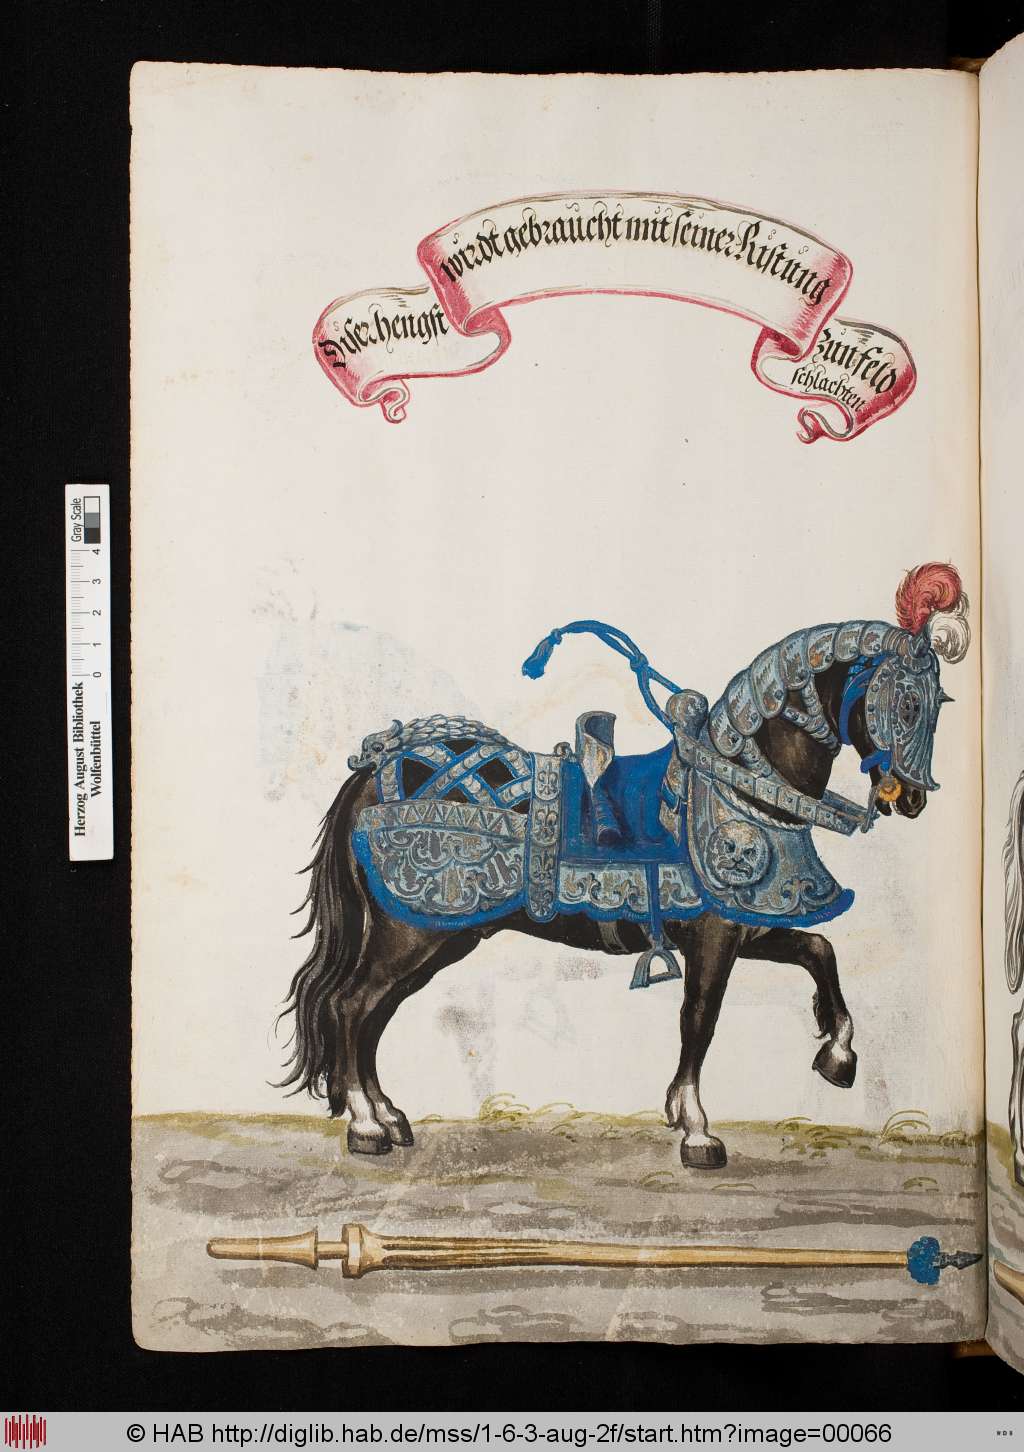 diser hengst
wirdt gebraucht mit seiner Ristung
Zun feld
schlachten
Herzog August Bibliothek
Wolfenbüttel
0 1 2 3 4
Gray Scale
© HAB http://diglib.hab.de/mss/1-6-3-aug-2f/start.htm?image=00066